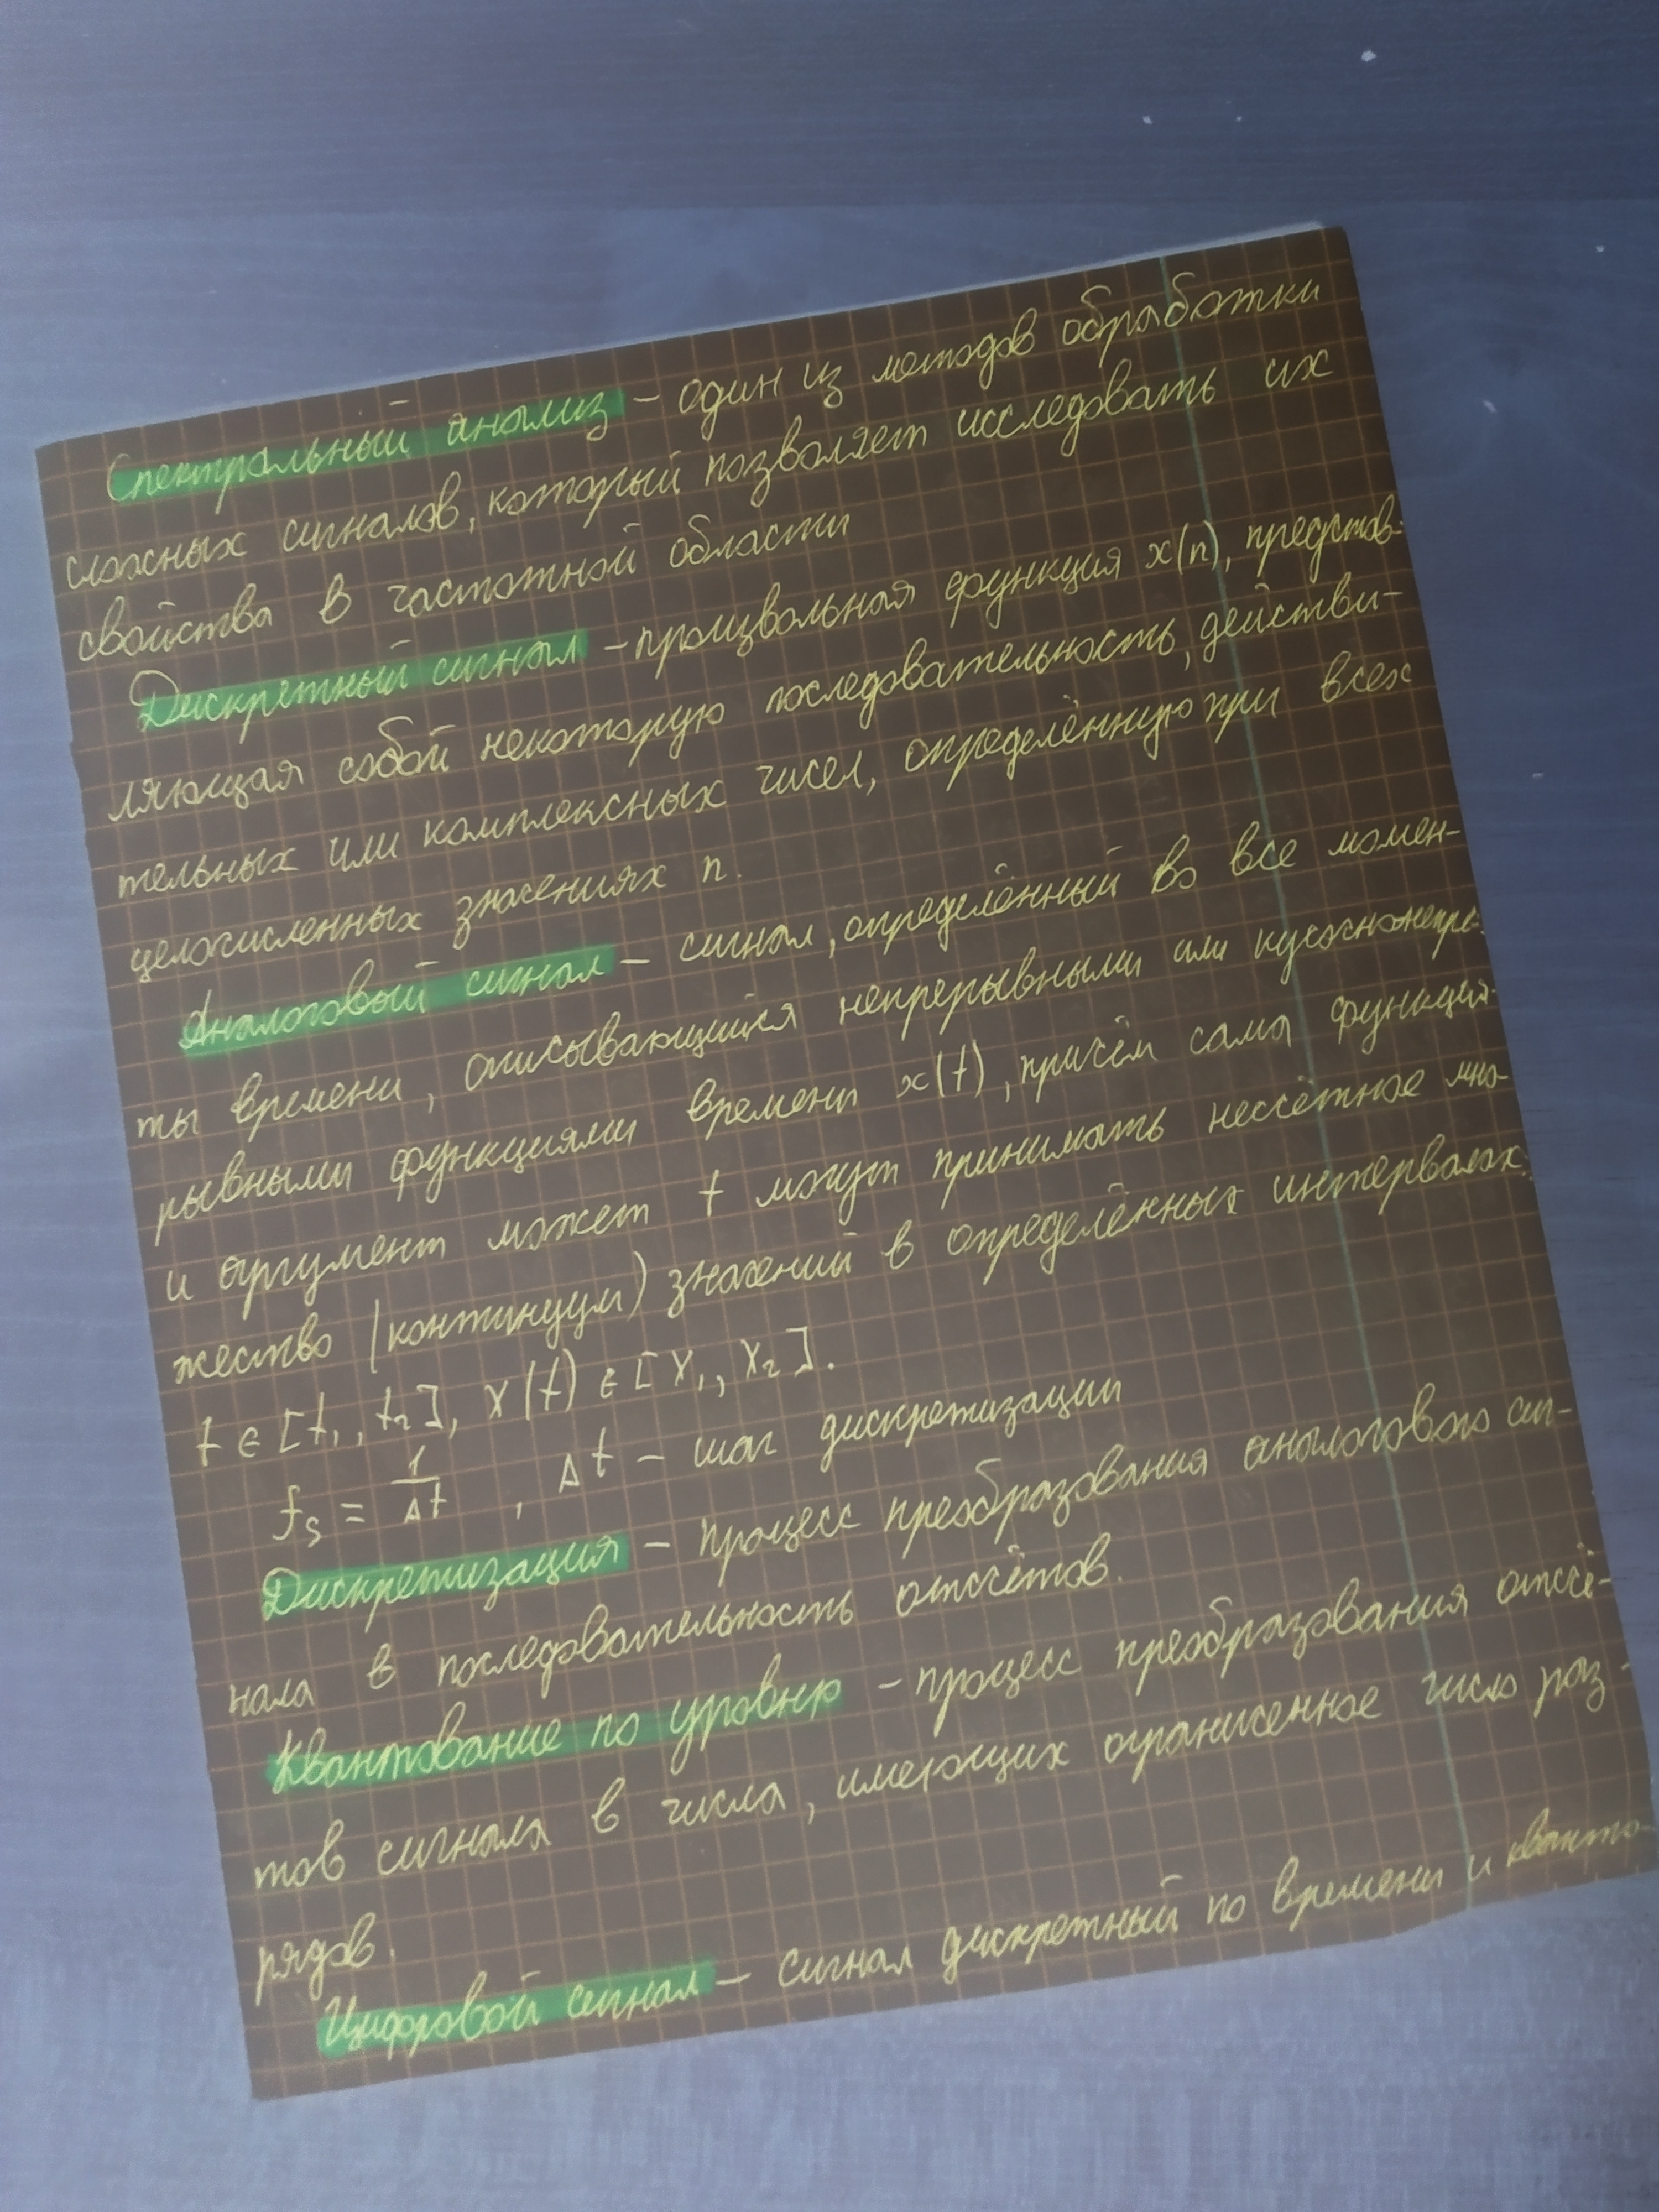 Спектральный анализ – один из методов обработки
сложных сигналов, который позволяет исследовать их
свойства в частотной области
Дискретный сигнал – произвольная функция x(n), представ-
ляющая собой некоторую последовательность, действи-
тельных или комплексных чисел, определённую при всех
целочисленных значениях n.
Аналоговый сигнал – сигнал, определённый во все момен-
ты времени, описывающийся непрерывными или кусочнонепре-
рывными функциями времени x(t), причём сама функция
и аргумент может t могут принимать несчётное мно-
жество (континуум) значений в определённых интервалах
t ∈ [t₁, t₂], x(t) ∈ [x₁, x₂].
fₛ = 1/Δt , Δt – шаг дискретизации
Дискретизация – процесс преобразования аналогового сиг-
нала в последовательность отсчётов.
Квантование по уровню – процесс преобразования отсчё-
тов сигнала в числа, имеющих ограниченное число раз-
рядов.
Цифровой сигнал – сигнал дискретный по времени и кванто-